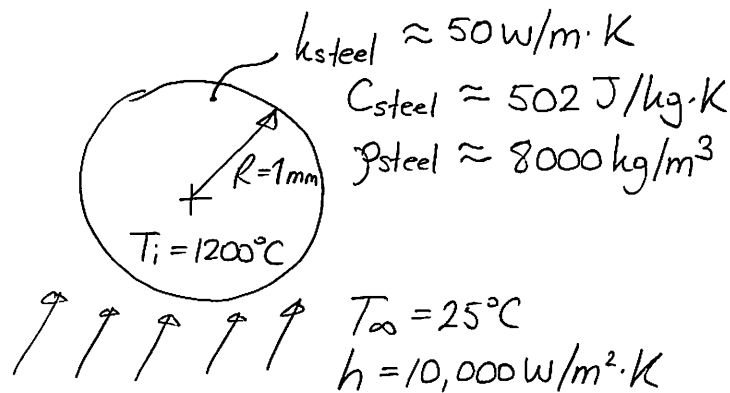 ksteel ≈ 50 W/m·K
Csteel ≈ 502 J/kg·K
ρsteel ≈ 8000 kg/m³
R=1mm
Ti = 1200°C
T∞ = 25°C
h = 10,000 W/m²·K